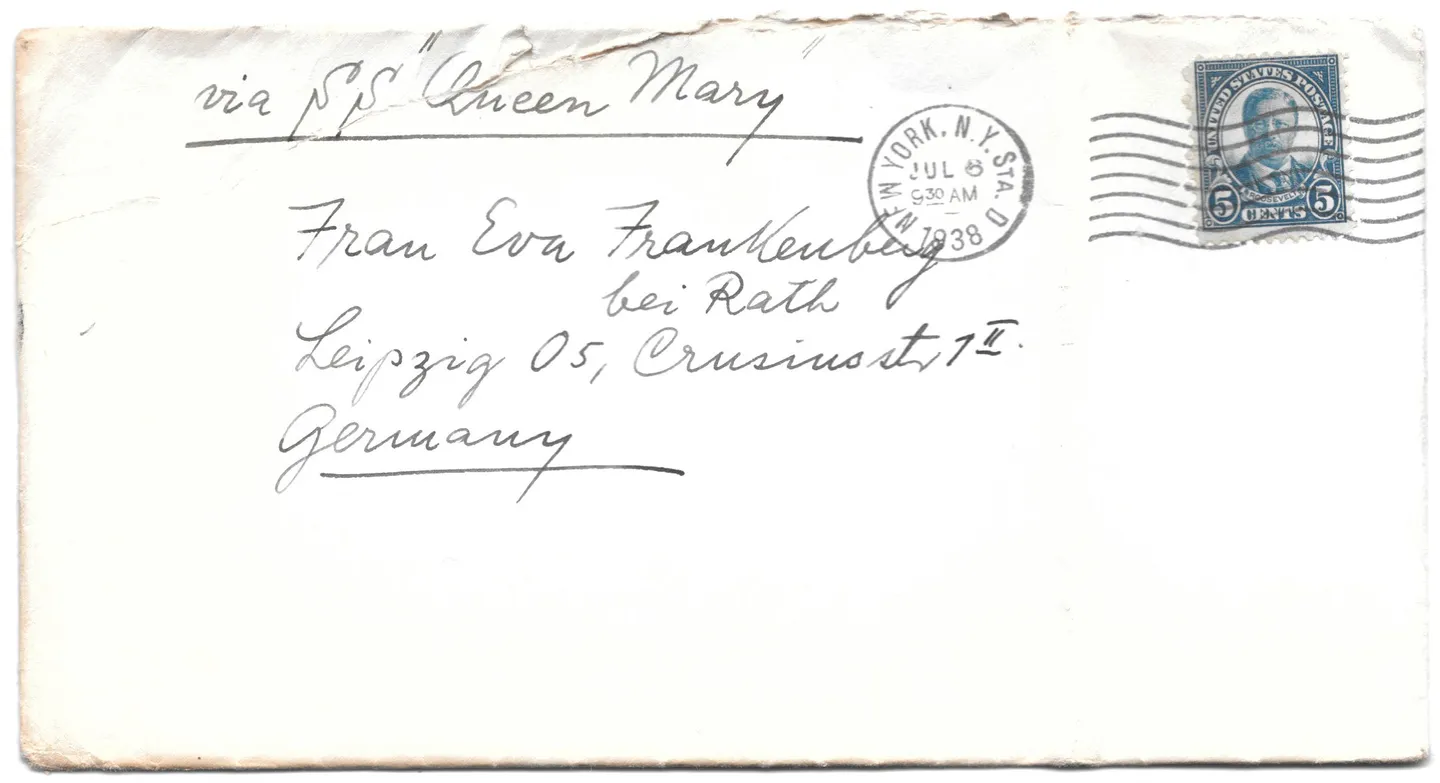 via SS "Queen Mary"
NEW YORK, N.Y. STA. D
JUL 6
9 30 AM
1938
UNITED STATES POSTAGE
ROOSEVELT
5 CENTS 5
Frau Eva Frankenberg
bei Rath
Leipzig O5, Crusiusstr 1 II.
Germany